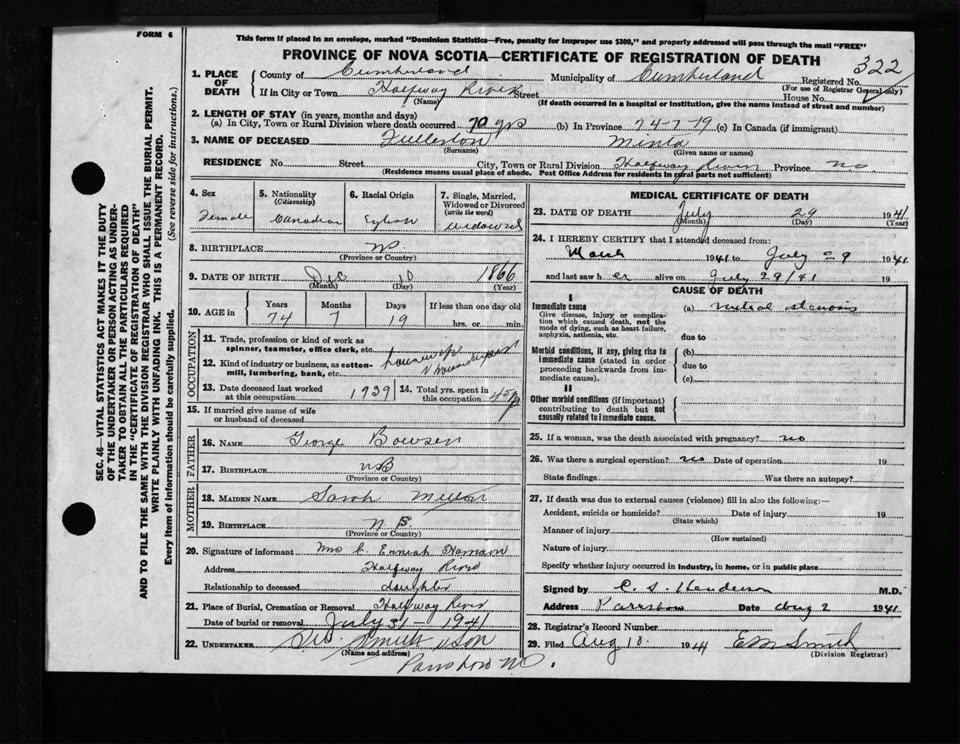 FORM 6
This form if placed in an envelope, marked "Dominion Statistics—Free, penalty for improper use $300," and properly addressed will pass through the mail "FREE"
PROVINCE OF NOVA SCOTIA—CERTIFICATE OF REGISTRATION OF DEATH
322
1. PLACE OF DEATH
County of Cumberland Municipality of Cumberland Registered No.
(For use of Registrar General only)
If in City or Town Halfway River Street House No.
(Name) (If death occurred in a hospital or institution, give the name instead of street and number)
2. LENGTH OF STAY (in years, months and days)
(a) In City, Town or Rural Division where death occurred 70 yrs (b) In Province 74-7-19 (c) In Canada (if immigrant)
3. NAME OF DECEASED Fullerton Minta
(Surname) (Given name or names)
RESIDENCE No. Street City, Town or Rural Division Halfway River Province
(Residence means usual place of abode. Post Office Address for residents in rural parts not sufficient)
4. Sex Female
5. Nationality (Citizenship) Canadian
6. Racial Origin
7. Single, Married, Widowed or Divorced (write the word) widowed
8. BIRTHPLACE
(Province or Country)
9. DATE OF BIRTH Dec 10 1866
(Month) (Day) (Year)
10. AGE in Years Months Days If less than one day old
74 7 19 hrs. or min.
OCCUPATION
11. Trade, profession or kind of work as spinner, teamster, office clerk, etc.
12. Kind of industry or business, as cotton-mill, lumbering, bank, etc.
13. Date deceased last worked at this occupation 1939
14. Total yrs. spent in this occupation
15. If married give name of wife or husband of deceased
FATHER
16. NAME George Bowser
17. BIRTHPLACE NB
(Province or Country)
MOTHER
18. MAIDEN NAME Sarah
19. BIRTHPLACE N B.
(Province or Country)
20. Signature of informant Mrs C.
Address Halfway River
Relationship to deceased daughter
21. Place of Burial, Cremation or Removal Halfway River
Date of burial or removal July 31 - 1941
22. UNDERTAKER Smith & Son
(Name and address)
MEDICAL CERTIFICATE OF DEATH
23. DATE OF DEATH July 29 1941
(Month) (Day) (Year)
24. I HEREBY CERTIFY that I attended deceased from:
March 1941 to July 29 1941
and last saw her alive on July 29/41 19
CAUSE OF DEATH
I
Immediate cause
Give disease, injury or complication which caused death, not the mode of dying, such as heart failure, asphyxia, asthenia, etc.
(a) mitral stenosis
due to
Morbid conditions, if any, giving rise to immediate cause (stated in order proceeding backwards from immediate cause).
(b)
due to
(c)
II
Other morbid conditions (if important) contributing to death but not causally related to immediate cause.
25. If a woman, was the death associated with pregnancy? no
26. Was there a surgical operation? no Date of operation 19
State findings Was there an autopsy?
27. If death was due to external causes (violence) fill in also the following:—
Accident, suicide or homicide? Date of injury 19
(State which)
Manner of injury
(How sustained)
Nature of injury
Specify whether injury occurred in industry, in home, or in public place
Signed by C. S. Henderson M.D.
Address Parrsboro Date Aug 2 1941
28. Registrar's Record Number
29. Filed Aug 18. 1941 EM Smith
(Division Registrar)
SEC. 46—VITAL STATISTICS ACT MAKES IT THE DUTY
OF THE UNDERTAKER OR PERSON ACTING AS UNDER-
TAKER TO OBTAIN ALL THE PARTICULARS REQUIRED
IN THE "CERTIFICATE OF REGISTRATION OF DEATH"
AND TO FILE THE SAME WITH THE DIVISION REGISTRAR WHO SHALL ISSUE THE BURIAL PERMIT.
WRITE PLAINLY WITH UNFADING INK. THIS IS A PERMANENT RECORD.
Every item of information should be carefully supplied. (See reverse side for instructions.)